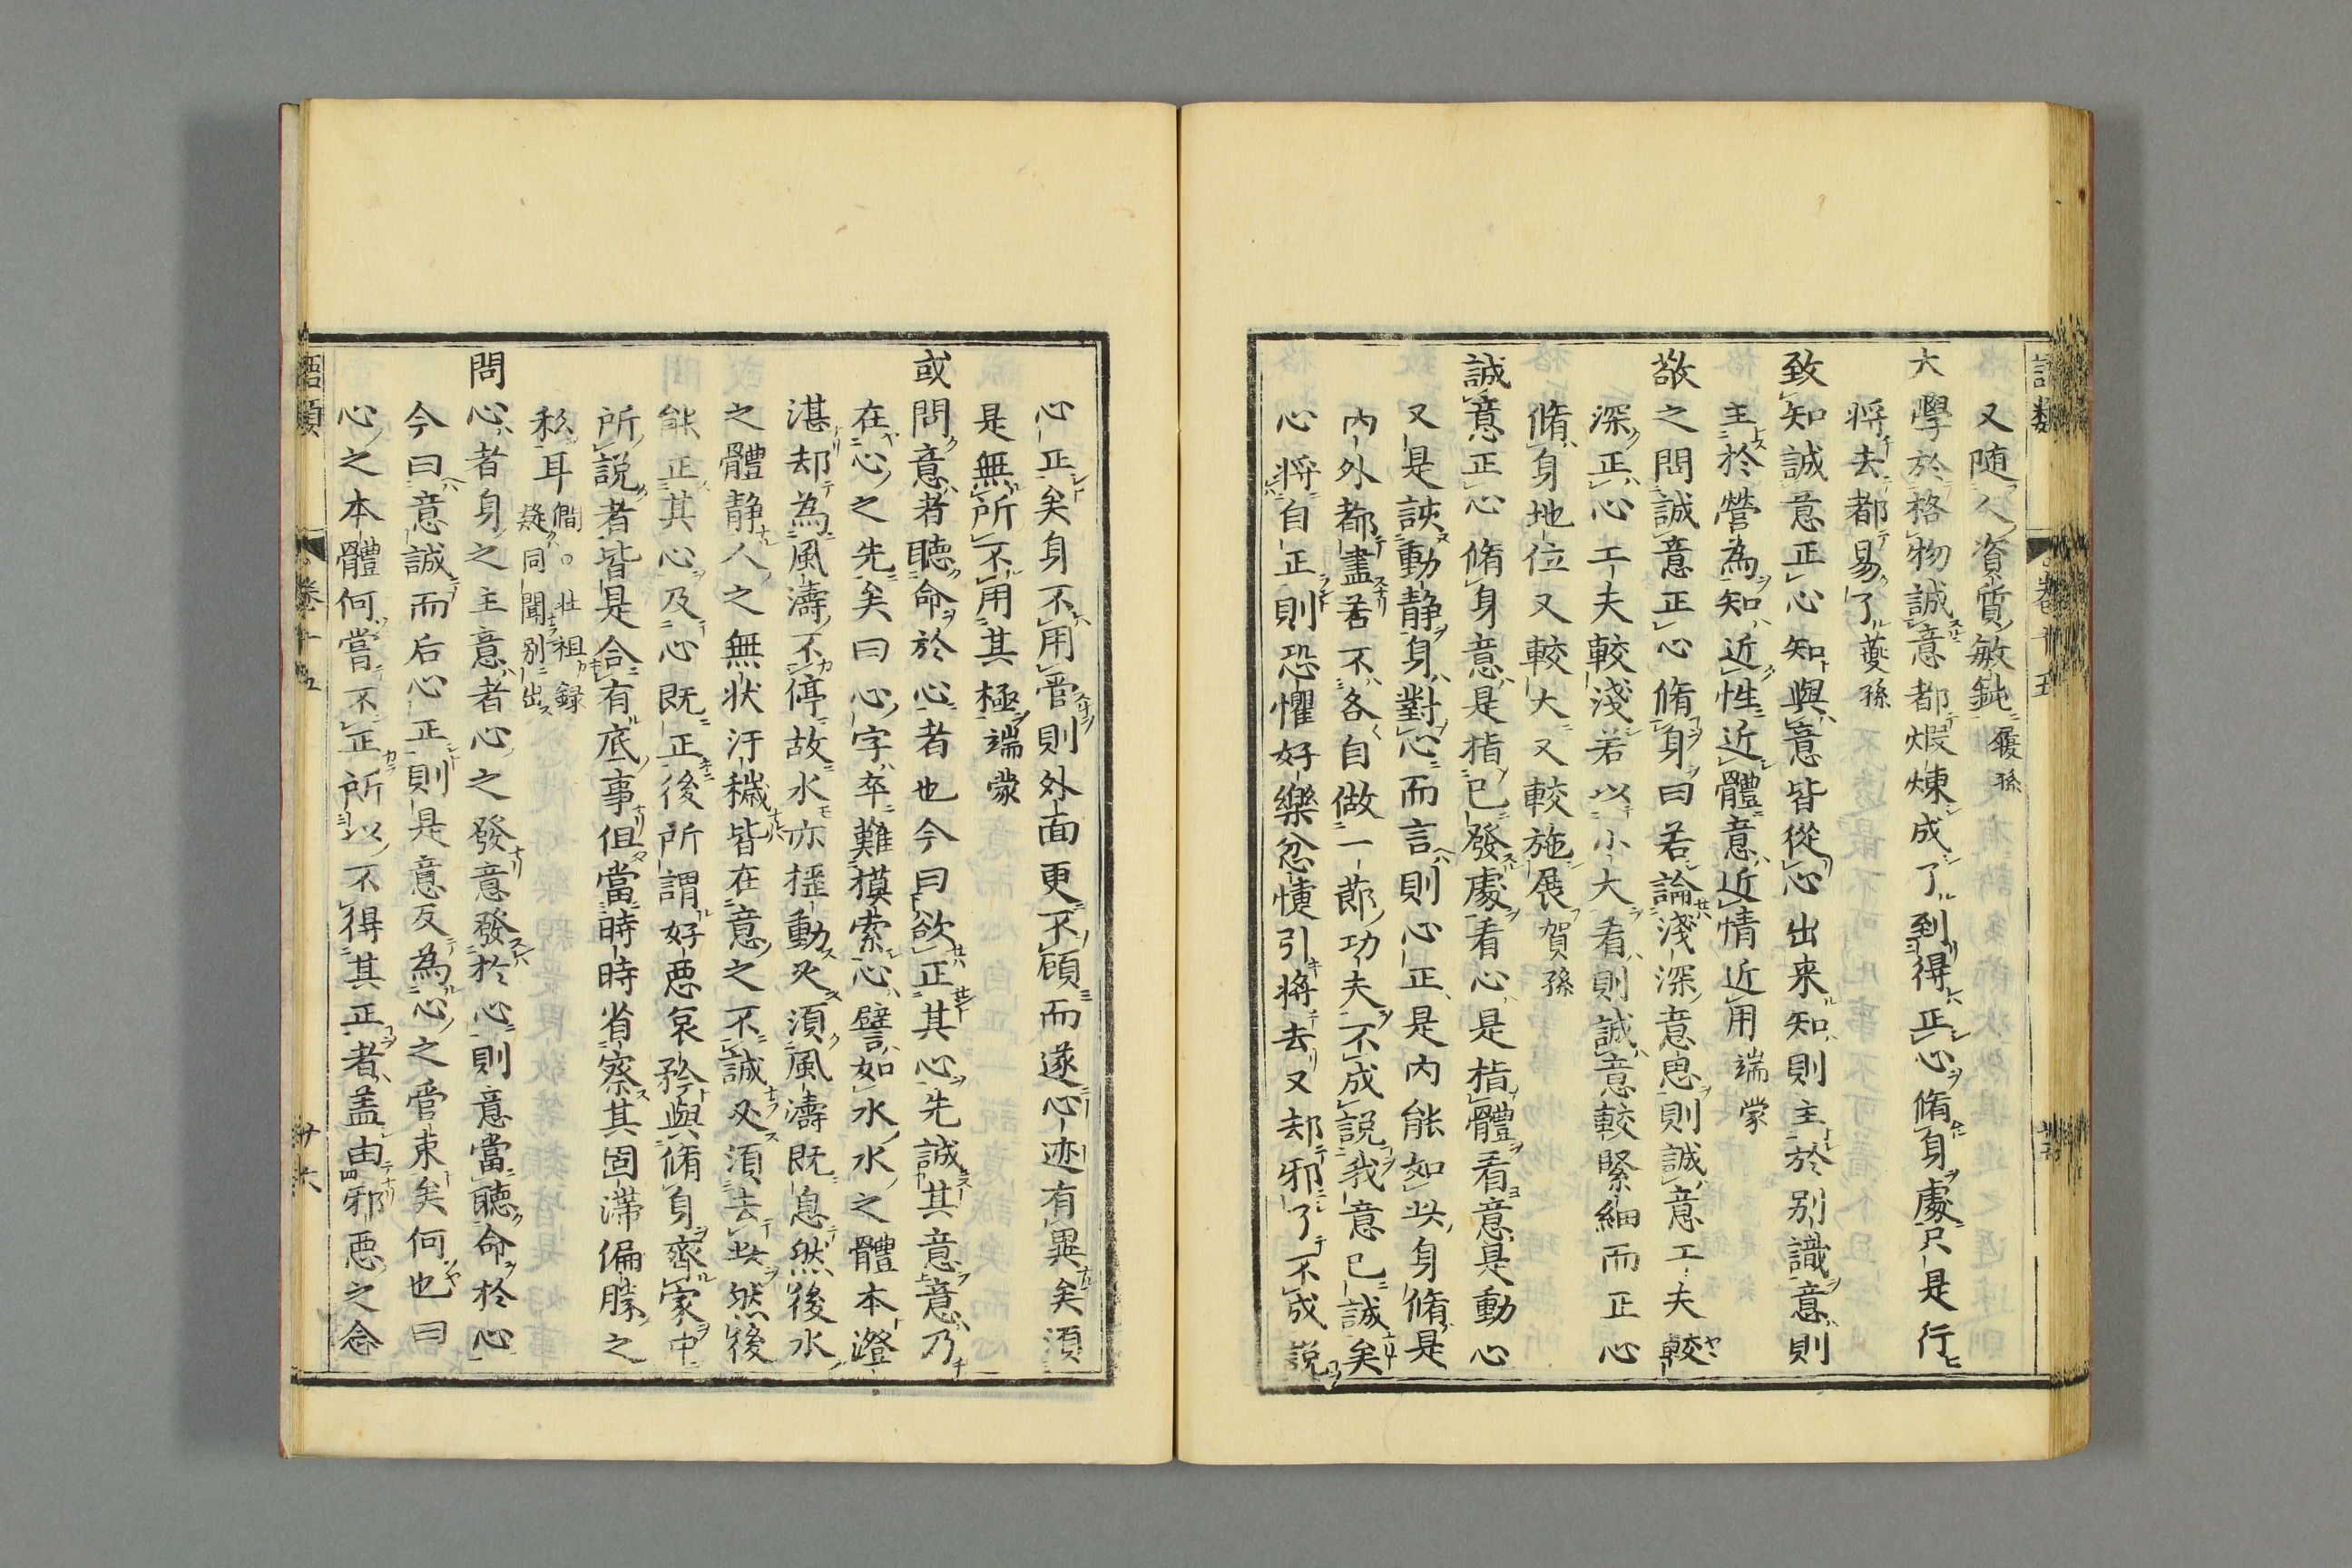 語類
卷十五
又隨人資質敏鈍履孫
大學於格物誠意都煅煉成了到得正心脩身處只是行
将去都易了夔孫
致知誠意正心知與意皆從心出来知則主於別識意則
主於營為知近性近體意近情近用端蒙
敬之問誠意正心脩身曰若論淺深意思則誠意工夫較
深正心工夫較淺若以小大看則誠意較緊細而正心
脩身地位又較大又較施展賀孫
誠意正心脩身意是指已發處看心是指體看意是動心
又是該動静身對心而言則心正是内能如此身脩是
内外都盡若不各自做一節功夫不成說我意已誠矣
心将自正則恐懼好樂忿懥引将去又却邪了不成說
心正矣身不用管則外面更不顧而遂心迹有異矣須
是無所不用其極端蒙
或問意者聽命於心者也今曰欲正其心先誠其意意乃
在心之先矣曰心字卒難摸索心譬如水水之體本澄
湛却為風濤不停故水亦揺動必須風濤既息然後水
之體静人之無状汙穢皆在意之不誠必須去此然後
能正其心及心既正後所謂好惡哀矜與脩身齊家中
所説者皆是合有底事但當時時省察其固滯偏勝之
私耳僴○壮祖録疑同聞别出
問心者身之主意者心之發意發於心則意當聽命於心
今曰意誠而后心正則是意反為心之管束矣何也曰
心之本體何嘗不正所以不得其正者盖由邪惡之念
語類
卷十五
廿六